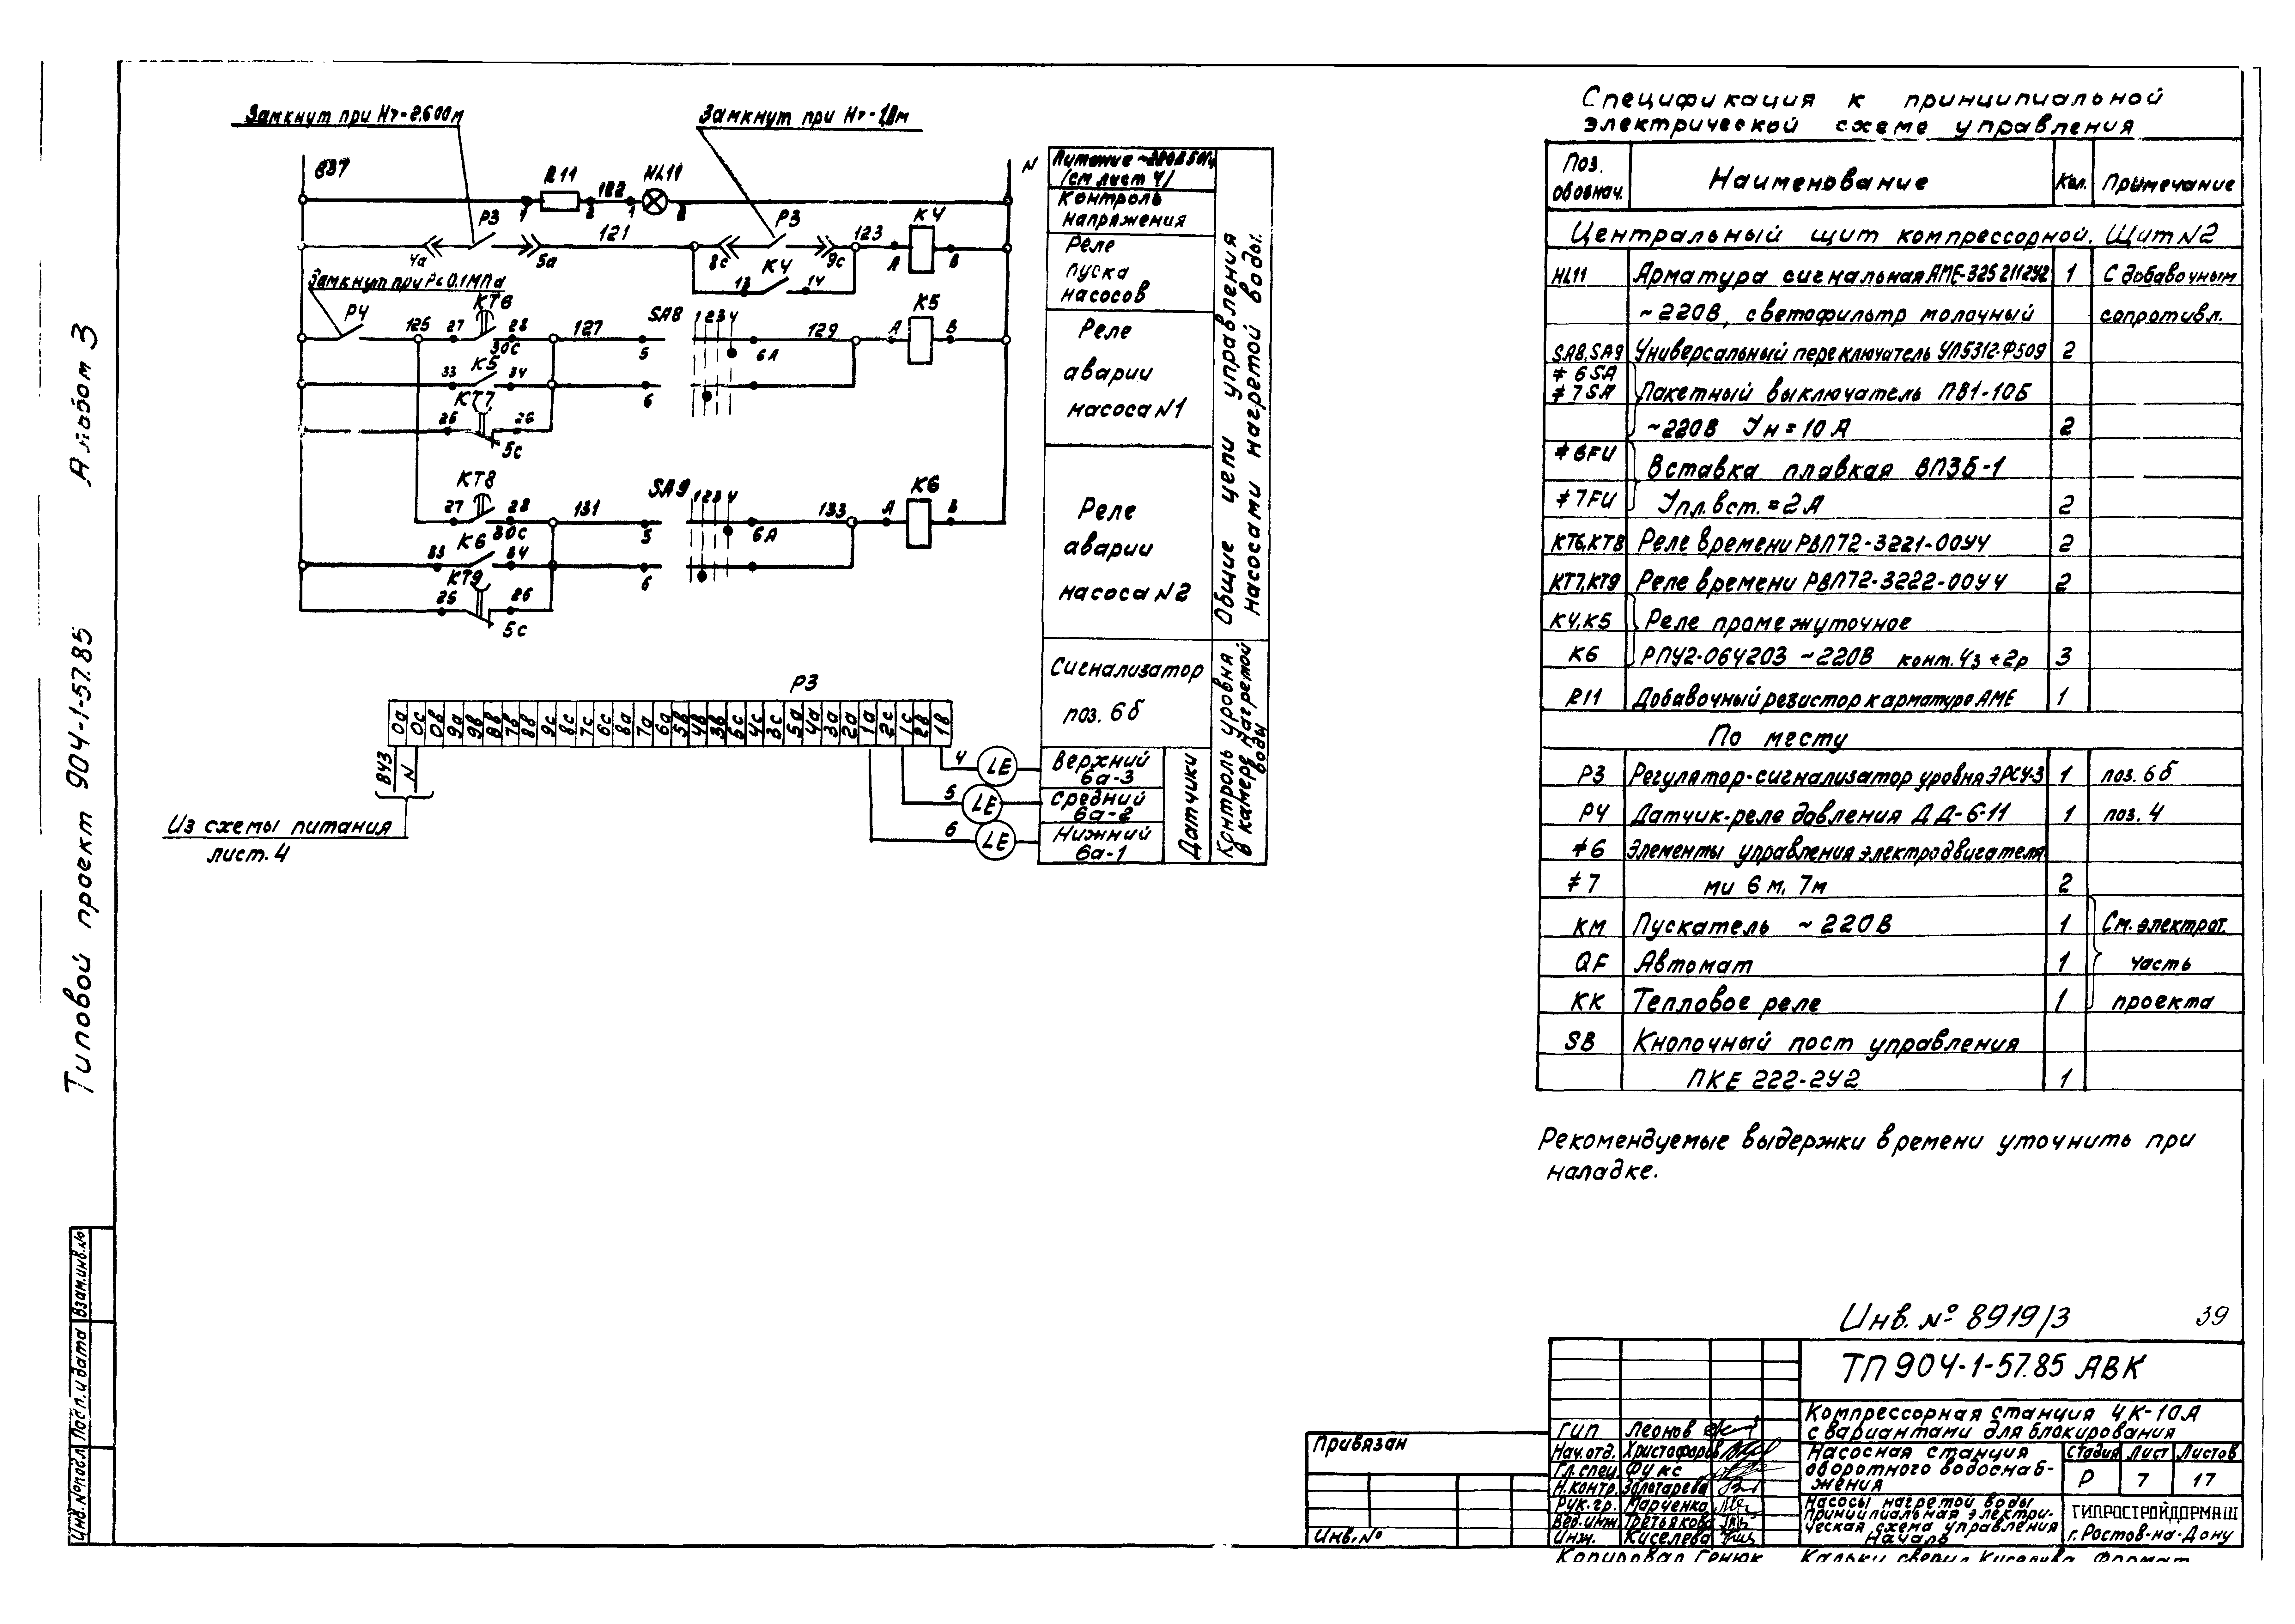 Типовой проект 904-1-57.85 Альбом 3
Замкнут при Нг-2.600м
Замкнут при Нг-1,8м
R11
122
HL11
1
2
1
2
N
Р3
121
Р3
123
К4
4а
5а
8с
9с
А
В
К4
13
14
Замкнут при Р≤0.1МПа
Р4
125
27
КТ6
28
127
SA8
1 2 3 4
129
К5
30С
5
6А
А
В
К5
33
34
6
КТ7
26
5с
КТ8
27
28
131
SA9
1 2 3 4
133
К6
30С
5
6А
А
В
К6
33
34
6
КТ9
25
26
5с
(см лист 4)
Контроль
напряжения
Реле
пуска
насосов
Реле
аварии
насоса N1
Реле
аварии
насоса N2
Общие цепи управления
насосами нагретой воды.
Сигнализатор
поз. 6б
Контроль уровня
в камере нагретой
воды
Р3
0а 0с 0в 9а 9в 8в 7в 8в 9с 8с 7с 6с 8а 7а 6а 5в 4в 3в 5с 4с 3с 5а 4а 3а 2а 1а 2с 1с 2в 1в
843
N
Из схемы питания
лист. 4
4
LE
Верхний
6а-3
5
LE
Средний
6а-2
6
LE
Нижний
6а-1
Датчики
Спецификация к принципиальной
электрической схеме управления
Поз.
обознач.
Наименование
Кол.
Примечание
Центральный щит компрессорной. Щит N2
HL11 Арматура сигнальная АМЕ-3252112У2 1 С добавочным
~220В, светофильтр молочный сопротивл.
SA8,SA9 Универсальный переключатель УП5312-Ф509 2
≠ 6SA
≠ 7SA Пакетный выключатель ПВ1-10Б
~220В Ун=10А 2
≠ 6FU Вставка плавкая ВПЗБ-1
≠ 7FU Упл.вст.=2А 2
КТ6,КТ8 Реле времени РВП72-3221-00У4 2
КТ7,КТ9 Реле времени РВП72-3222-00У4 2
К4,К5 Реле промежуточное
К6 РПУ2-064203 ~220В конт. 4з+2р 3
R11 Добавочный резистор к арматуре АМЕ 1
По месту
Р3 Регулятор-сигнализатор уровня ЭРСУ-3 1 поз. 6б
Р4 Датчик-реле давления ДД-6-11 1 поз. 4
≠6 Элементы управления электродвигателя
≠7 ми 6м, 7м 2
КМ Пускатель ~220В 1 См. электрот.
QF Автомат 1 часть
КК Тепловое реле 1 проекта
SB Кнопочный пост управления
ПКЕ 222-2У2 1
Рекомендуемые выдержки времени уточнить при
наладке.
Инв. № 8919/3
39
ТП 904-1-57.85 АВК
Компрессорная станция 4К-10А
с вариантами для блокирования
Насосная станция
оборотного водоснаб-
жения
Стадия Лист Листов
Р 7 17
Насосы нагретой воды
Принципиальная электри-
ческая схема управления
Начало
ГИПРОСТРОЙДОРМАШ
г. Ростов-на-Дону
ГИП Леонов
Нач.отд. Христофоров
Гл.спец. Фукс
Н.контр. Золотарева
Рук.гр. Марченко
Вед.инж. Третьякова
Инж. Киселева
Привязан
Инв.№
Инв.№подл. Подп. и дата Взам.инв.№
Копировал Генюк Кальку сверил Киселева Формат